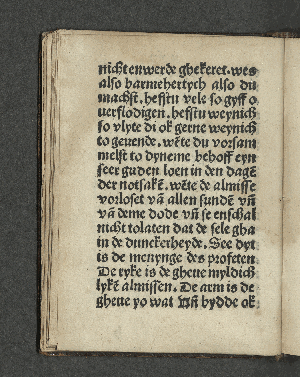 nicht enwerde ghekeret. wes
also barmehertych also du
machst. hefstu vele so gyff o
uerflodigen. hefstu weynich
so vlyte di ok gerne weynich
to geuende. wēte du vorsam
melst to dyneme behoff eyn
seer guden loen in den dagē
der notsakē. wēte de almisse
vorloset vā allen sundē vn̄
vā deme dode vn̄ se enschal
nicht tolaten dat de sele gha
in de dunckerheyde. See dyt
is de menynge des profeten
De ryke is de gheue myldich
lykē almissen. De arm is de
gheue yo wat Vn̄ bydde ok